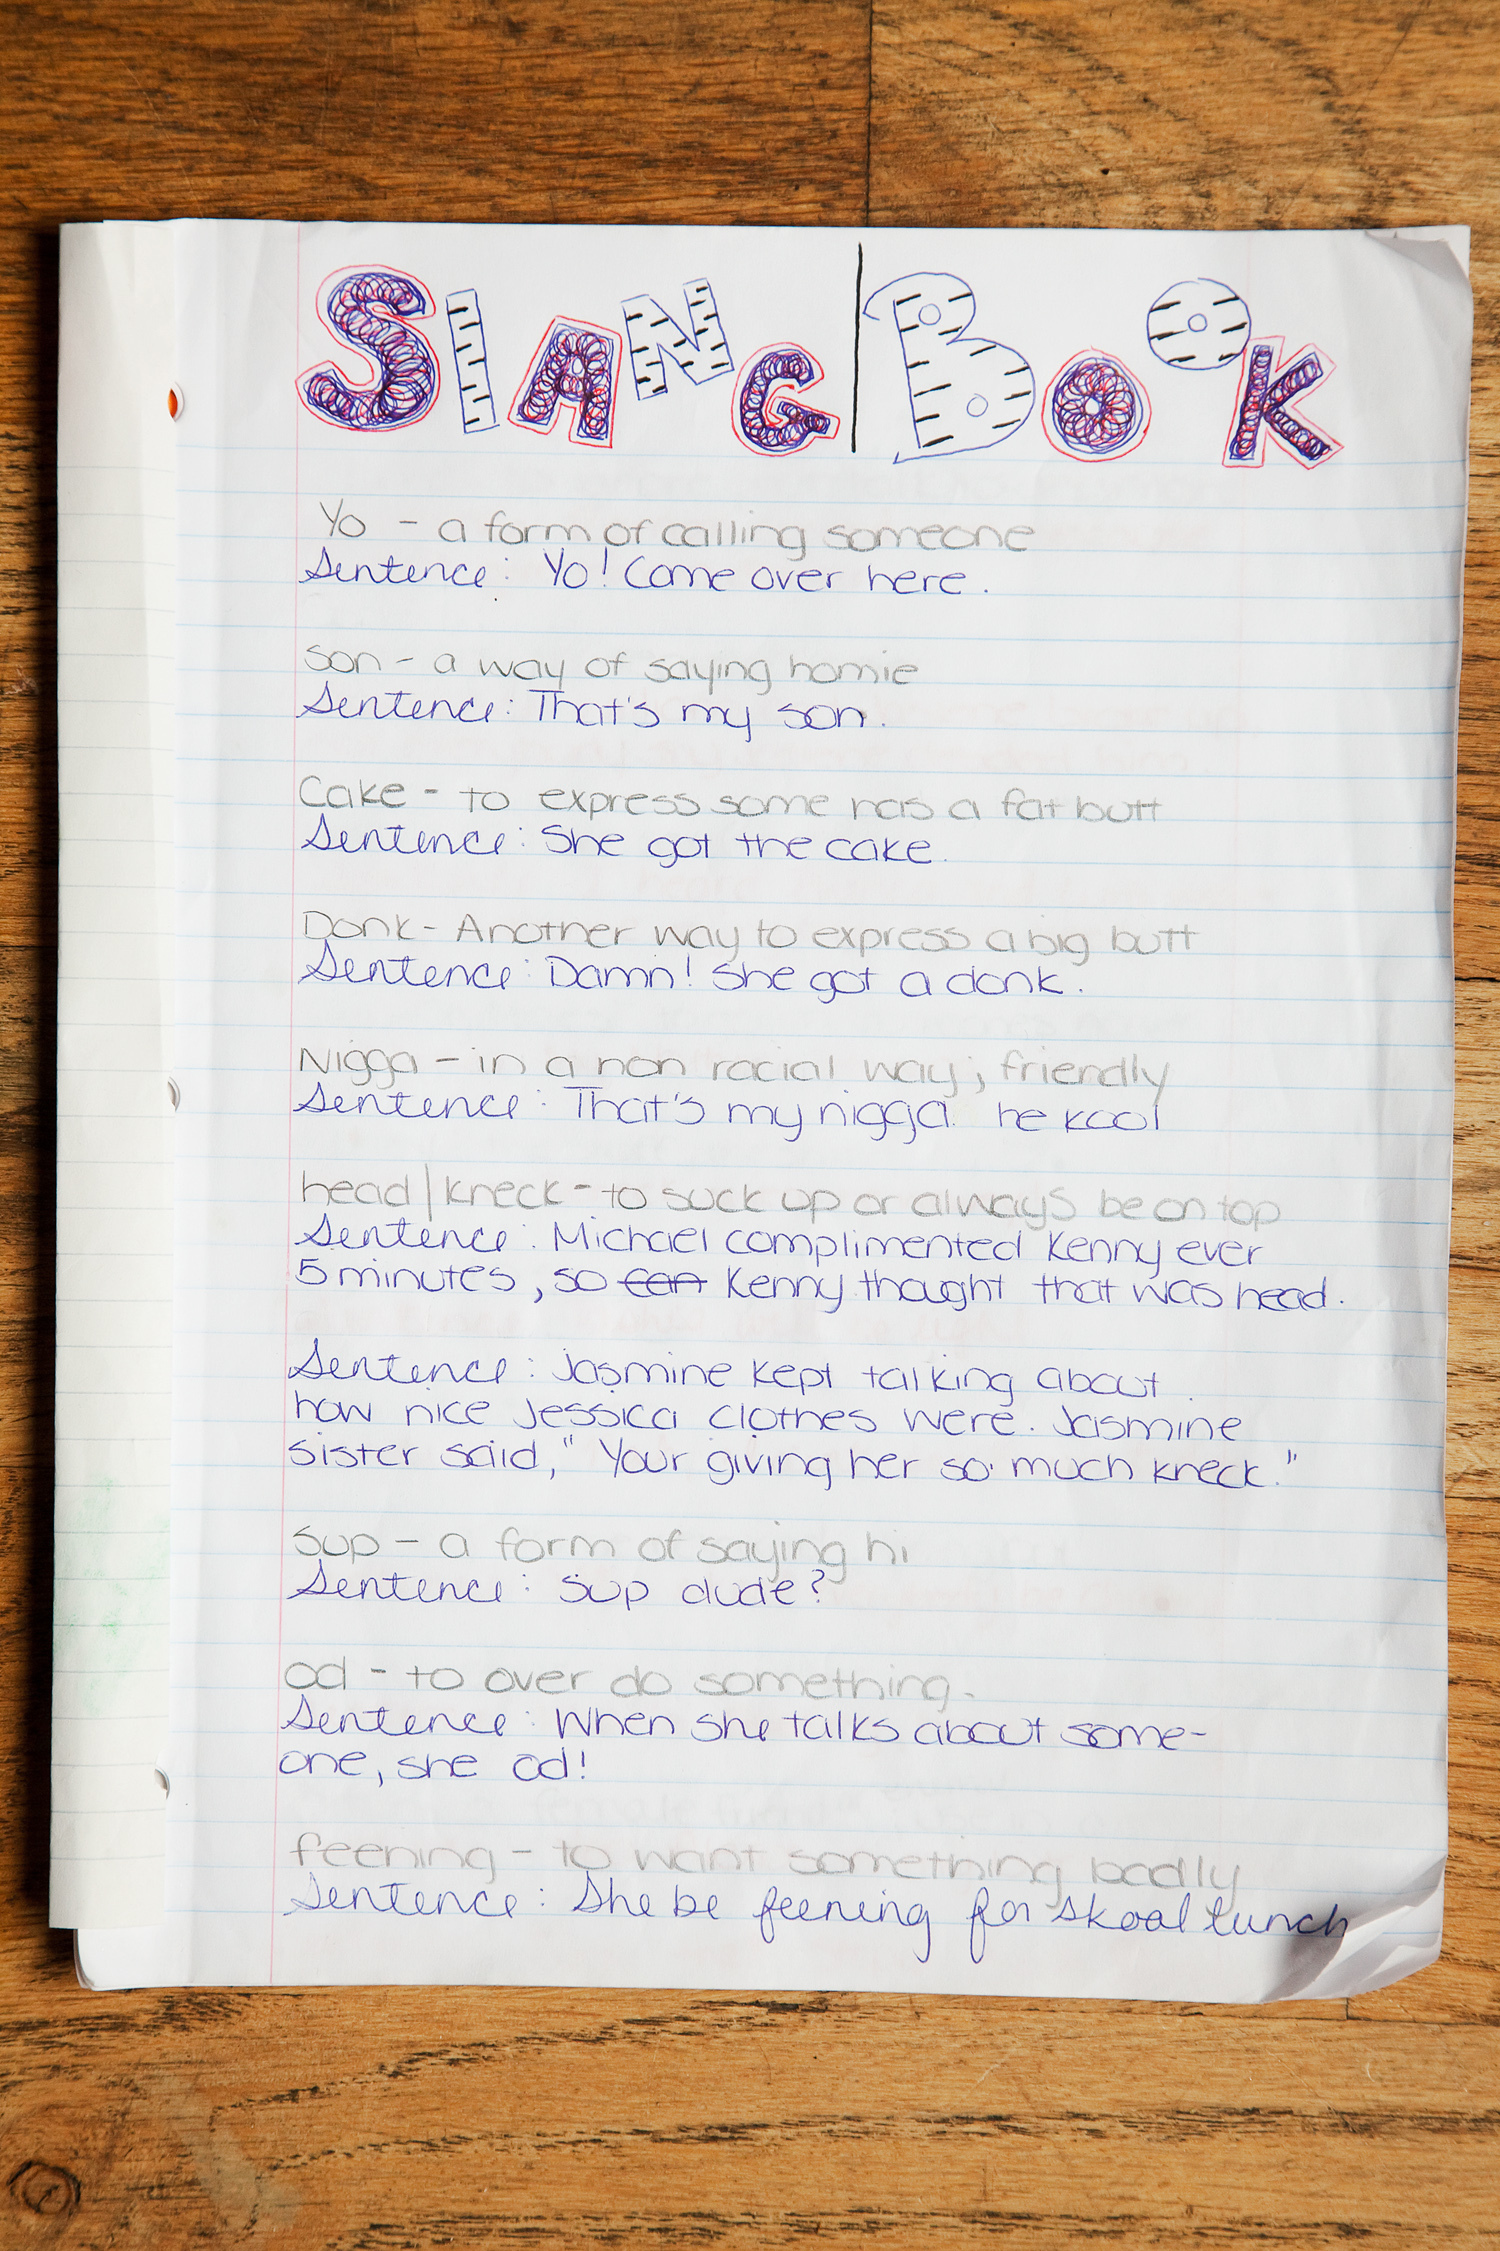 SlANG | BOOK
Yo - a form of calling someone
Sentence: Yo! Come over here.
son - a way of saying homie
Sentence: That's my son.
Cake - to express some has a fat butt
Sentence: She got the cake.
Donk - Another way to express a big butt
Sentence: Damn! She got a donk.
Nigga - in a non racial way; friendly
Sentence: That's my nigga. he kool
head | kneck - to suck up or always be on top
Sentence: Michael complimented Kenny ever
5 minutes, so Kenny thought that was head.
Sentence: Jasmine kept talking about
how nice Jessica clothes were. Jasmine
sister said, "Your giving her so much kneck."
Sup - a form of saying hi
Sentence: Sup dude?
od - to over do something.
Sentence: When she talks about some-
one, she od!
feening - to want something badly
Sentence: She be feening for skool lunch